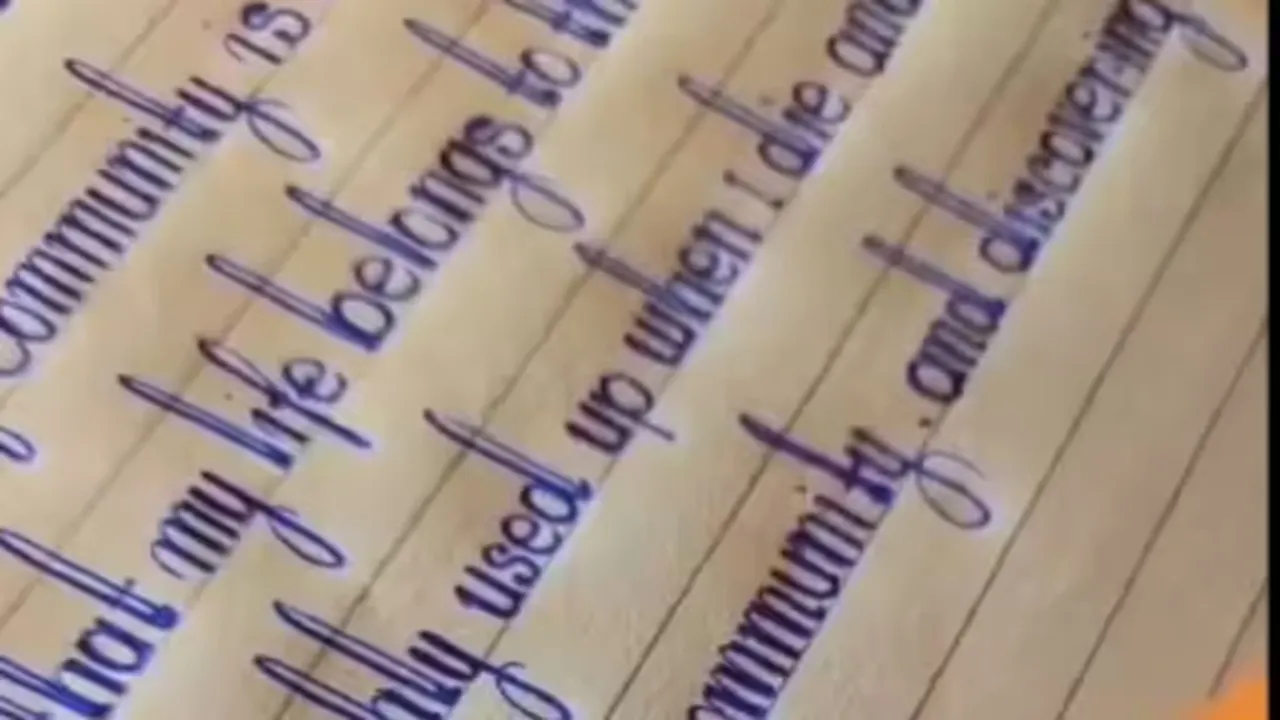 community is
that my life belongs to th
hly used up when I die and
ommunity. and discovering